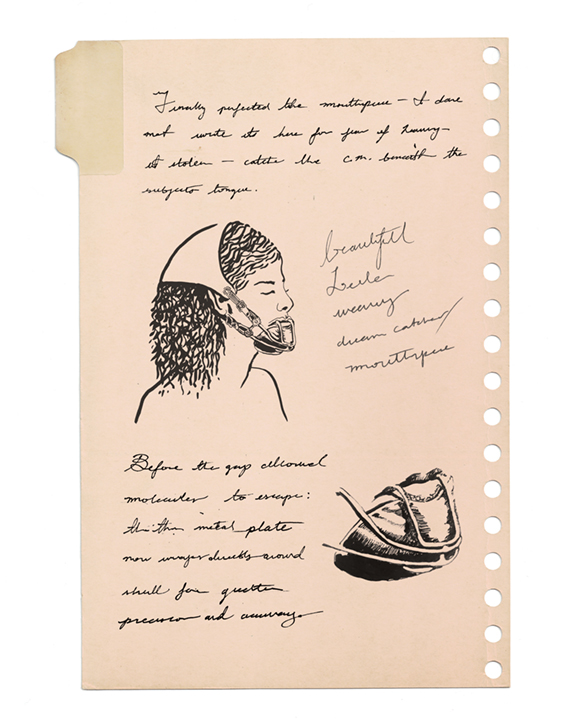 Finally perfected the mouthpiece — I dare
not write it here for fear of having
it stolen — catch the c.m. beneath the
subjects tongue.
beautiful
wearing
dream catcher
mouthpiece
Before the gap allowed
molecules to escape:
thin metal plate
now wraps directly around
skull for greater
precision and accuracy